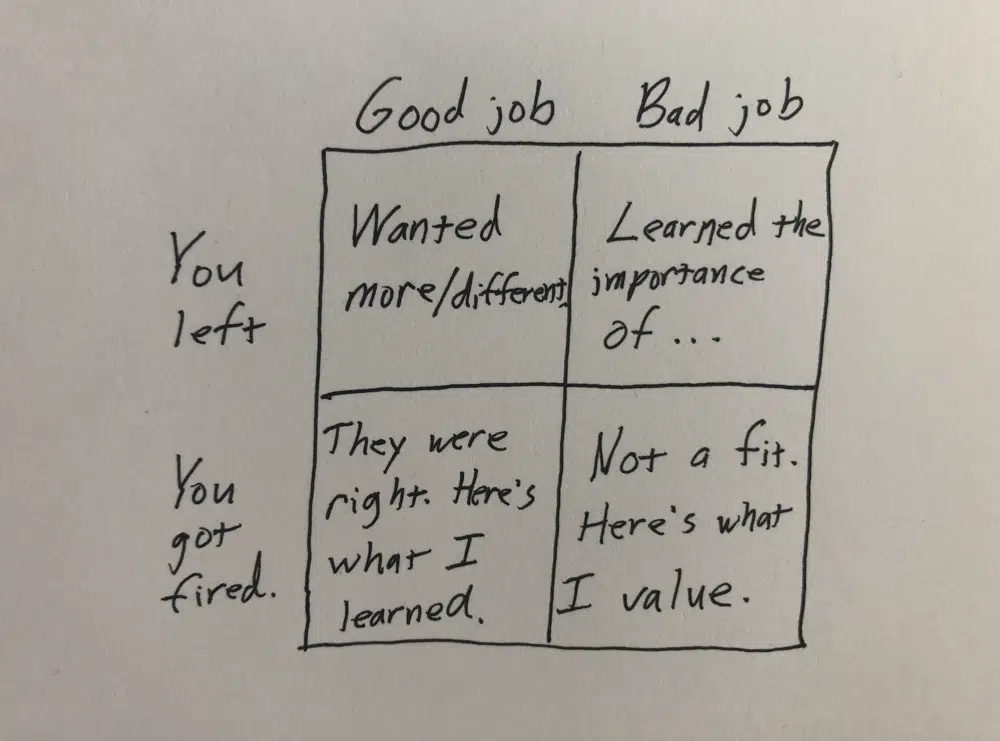 Good job
Bad job
You
left
Wanted
more/different.
Learned the
importance
of ...
You
got
fired.
They were
right. Here's
what I
learned.
Not a fit.
Here's what
I value.